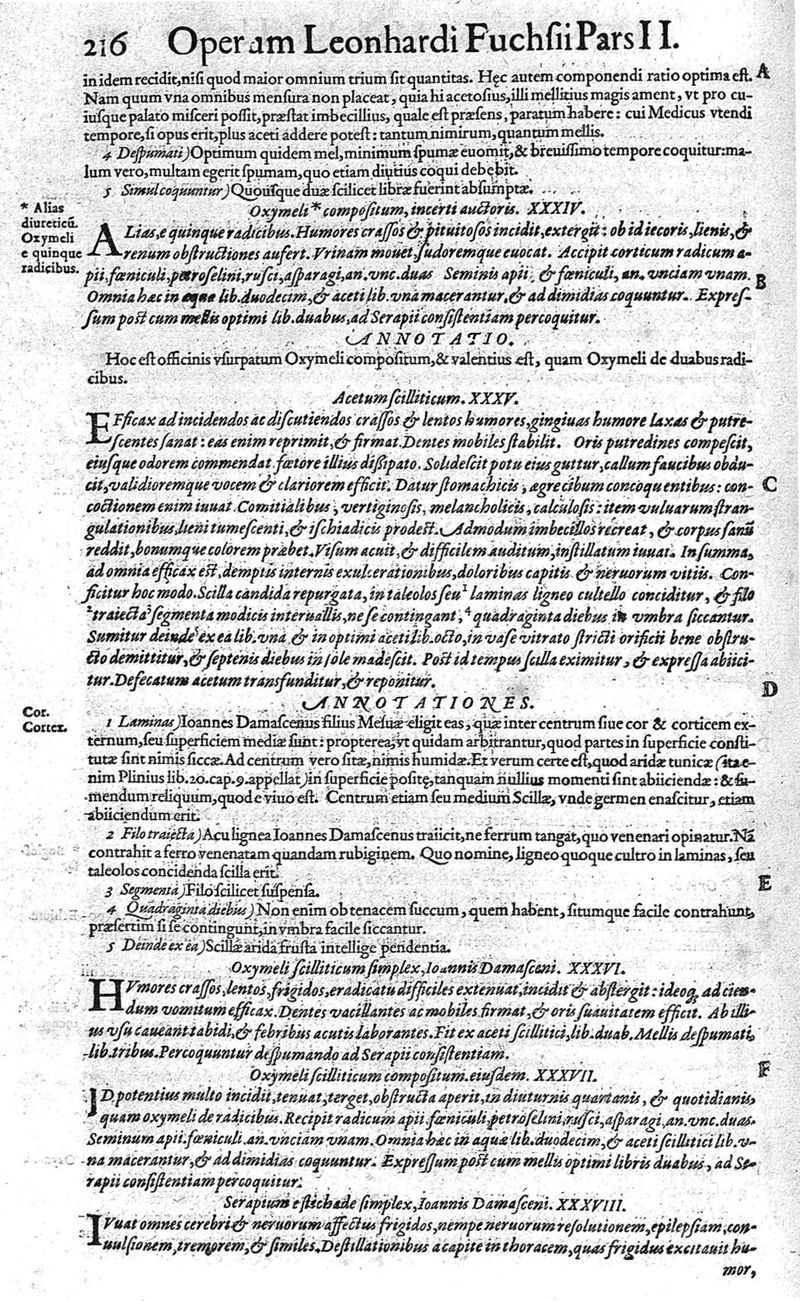 216 Operum Leonhardi Fuchsii Pars II.
in idem recidit, nisi quod maior omnium trium sit quantitas. Hęc autem componendi ratio optima est. A
Nam quum vna omnibus mensura non placeat, quia hi acetosius, illi mellitius magis ament, vt pro cu-
iusque palato misceri possit, præstat imbecillius, quale est præsens, paratum habere: cui Medicus vtendi
tempore, si opus erit, plus aceti addere potest: tantum nimirum, quantum mellis.
4 Despumati) Optimum quidem mel, minimum spumæ euomit, & breuissimo tempore coquitur: ma-
lum vero, multam egerit spumam, quo etiam diutius coqui debebit.
5 Simul coquuntur) Quousque duæ scilicet libræ fuerint absumptæ.
Oxymeli * compositum, incerti auctoris. XXXIV.
* Alias
diureticū.
Oxymeli
e quinque
radicibus.
ALias, e quinque radicibus. Humores crassos & pituitosos incidit, extergit: ob id iecoris, lienis, &
renum obstructiones aufert. Vrinam mouet, sudoremque euocat. Accipit corticum radicum a-
pii, fœniculi, petroselini, rusci, asparagi, an. vnc. duas Seminis apii & fœniculi, an. vnciam vnam. B
Omnia hæc in aquæ lib. duodecim, & aceti lib. vna macerantur, & ad dimidias coquuntur. Expres-
sum post cum mellis optimi lib. duabus, ad Serapii consistentiam percoquitur.
ANNOTATIO.
Hoc est officinis vsurpatum Oxymeli compositum, & valentius est, quam Oxymeli de duabus radi-
cibus.
Acetum scilliticum. XXXV.
EFficax ad incidendos ac discutiendos crassos & lentos humores, gingiuas humore laxas & putre-
scentes sanat: eas enim reprimit, & firmat. Dentes mobiles stabilit. Oris putredines compescit,
eiusque odorem commendat fœtore illius dissipato. Solidescit potu eius guttur, callum faucibus obdu-
cit, validioremque vocem & clariorem efficit. Datur stomachicis, ægre cibum concoquentibus: con- C
coctionem enim iuuat. Comitialibus, vertiginosis, melancholicis, calculosis: item vuluarum stran-
gulationibus, lieni tumescenti, & ischiadicis prodest. Admodum imbecillos recreat, & corpus sanū
reddit, bonumque colorem præbet. Visum acuit, & difficilem auditum, instillatum iuuat. In summa,
ad omnia efficax est, demptis internis exulcerationibus, doloribus capitis & neruorum vitiis. Con-
ficitur hoc modo. Scilla candida repurgata, in taleolos seu 1 laminas ligneo cultello conciditur, & filo
2 traiecta 3 segmenta modicis interuallis, ne se contingant, 4 quadraginta diebus in vmbra siccantur.
Sumitur deinde 5 ex ea lib. vna & in optimi aceti lib. octo, in vase vitrato stricti orificii bene obstru-
cto demittitur, & septenis diebus in sole madescit. Post id tempus scilla eximitur, & expressa abiici-
tur. Defecatum acetum transfunditur, & reponitur.
D
ANNOTATIONES.
Cor.
Cortex.
1 Laminas) Ioannes Damascenus filius Mesuæ eligit eas, quæ inter centrum siue cor & corticem ex-
ternum, seu superficiem mediæ sunt: propterea, vt quidam arbitrantur, quod partes in superficie consti-
tutæ sint nimis siccæ. Ad centrum vero sitæ, nimis humidæ. Et verum certe est, quod aridæ tunicæ (ita e-
nim Plinius lib. 20. cap. 9. appellat) in superficie positę, tanquam nullius momenti sint abiiciendæ: & su-
mendum reliquum, quod e viuo est. Centrum etiam seu medium Scillæ, vnde germen enascitur, etiam
abiiciendum erit.
2 Filo traiecta) Acu lignea Ioannes Damascenus traiicit, ne ferrum tangat, quo venenari opinatur. Nā
contrahit a ferro venenatam quandam rubiginem. Quo nomine, ligneo quoque cultro in laminas, seu
taleolos concidenda scilla erit.
3 Segmenta) Filo scilicet suspensa. E
4 Quadraginta diebus) Non enim ob tenacem succum, quem habent, situmque facile contrahunt,
præsertim si se contingunt, in vmbra facile siccantur.
5 Deinde ex ea) Scillæ arida frusta intellige pendentia.
Oxymeli scilliticum simplex, Ioannis Damasceni. XXXVI.
HVmores crassos, lentos, frigidos, eradicatu difficiles extenuat, incidit & abstergit: ideoq́; ad cien-
dum vomitum efficax. Dentes vacillantes ac mobiles firmat, & oris suauitatem efficit. Ab illi-
us vsu caueant tabidi, & febribus acutis laborantes. Fit ex aceti scillitici, lib. duab. Mellis despumati,
lib. tribus. Percoquuntur despumando ad Serapii consistentiam.
Oxymeli scilliticum compositum. eiusdem. XXXVII. F
ID potentius multo incidit, tenuat, terget, obstructa aperit, in diuturnis quartanis, & quotidianis,
quam oxymeli de radicibus. Recipit radicum apii, fœniculi, petroselini, rusci, asparagi, an. vnc. duas.
Seminum apii, fœniculi, an. vnciam vnam. Omnia hæc in aquæ lib. duodecim, & aceti scillitici lib. v-
na macerantur, & ad dimidias coquuntur. Expressum post cum mellis optimi libris duabus, ad Se-
rapii consistentiam percoquitur.
Serapium e stichade simplex, Ioannis Damasceni. XXXVIII.
IVuat omnes cerebri & neruorum affectus frigidos, nempe neruorum resolutionem, epilepsiam, con-
uulsionem, tremorem, & similes. Destillationibus a capite in thoracem, quas frigidus excitauit hu-
mor,